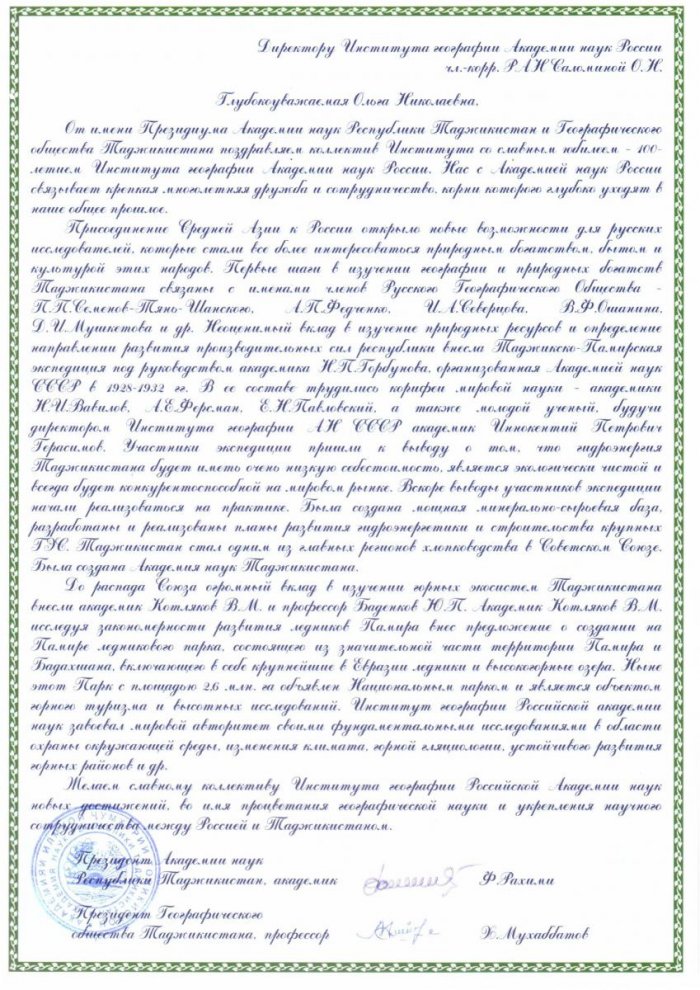 Директору Института географии Академии наук России
чл.-корр. РАН Саломиной О.Н.
Глубокоуважаемая Ольга Николаевна.
От имени Президиума Академии наук Республики Таджикистан и Географического
общества Таджикистана поздравляем коллектив Института со славным юбилеем - 100-
летием Института географии Академии наук России. Нас с Академией наук России
связывает крепкая многолетняя дружба и сотрудничество, корни которого глубоко уходят в
наше общее прошлое.
Присоединение Средней Азии к России открыло новые возможности для русских
исследователей, которые стали все более интересоваться природным богатством, бытом и
культурой этих народов. Первые шаги в изучении географии и природных богатств
Таджикистана связаны с именами членов Русского Географического Общества -
П.П.Семенов-Тянь-Шанского, А.П.Федченко, И.А.Северцова, В.Ф.Ошанина,
Д.И.Мушкетова и др. Неоценимый вклад в изучение природных ресурсов и определение
направлении развития производительных сил республики внесла Таджикско-Памирская
экспедиция под руководством академика Н.П.Горбунова, организованная Академией наук
СССР в 1928-1932 гг. В ее составе трудились корифеи мировой науки - академики
Н.И.Вавилов, А.Е.Ферсман, Е.Н.Павловский, а также молодой ученый, будучи
директором Института географии АН СССР академик Иннокентий Петрович
Герасимов. Участники экспедиции пришли к выводу о том, что гидроэнергия
Таджикистана будет иметь очень низкую себестоимость, является экологически чистой и
всегда будет конкурентоспособной на мировом рынке. Вскоре выводы участников экспедиции
начали реализоваться на практике. Была создана мощная минерально-сырьевая база,
разработаны и реализованы планы развития гидроэнергетики и строительства крупных
ГЭС. Таджикистан стал одним из главных регионов хлопководства в Советском Союзе.
Была создана Академия наук Таджикистана.
До распада Союза огромный вклад в изучении горных экосистем Таджикистана
внесли академик Котляков В.М. и профессор Баденков Ю.П. Академик Котляков В.М.
исследуя закономерности развития ледников Памира внес предложение о создании на
Памире ледникового парка, состоящего из значительной части территории Памира и
Бадахшана, включающего в себе крупнейшие в Евразии ледники и высокогорные озера. Ныне
этот Парк с площадью 2,6 млн. га объявлен Национальным парком и является объектом
горного туризма и высотных исследований. Институт географии Российской академии
наук завоевал мировой авторитет своими фундаментальными исследованиями в области
охраны окружающей среды, изменения климата, горной гляциологии, устойчивого развития
горных районов и др.
Желаем славному коллективу Института географии Российской Академии наук
новых достижений, во имя процветания географической науки и укрепления научного
сотрудничества между Россией и Таджикистаном.
Президент Академии наук
Республики Таджикистан, академик Ф.Рахими
Президент Географического
общества Таджикистана, профессор Х.Мухаббатов